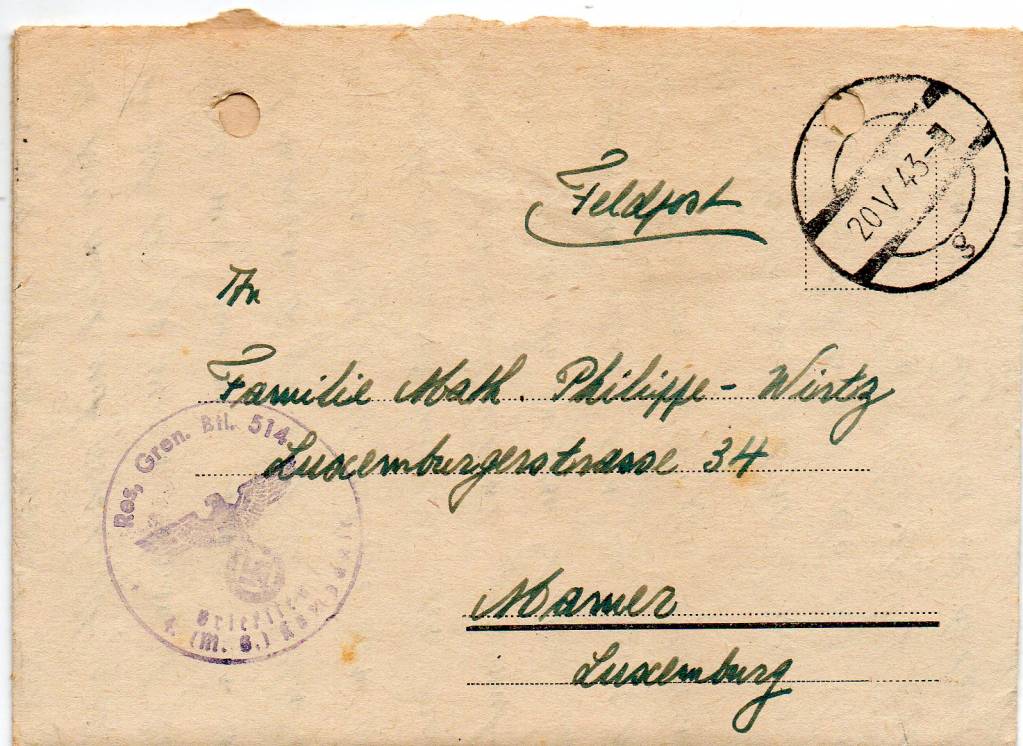 Feldpost
20 V 43-7
g
An
Familie Math. Philippe-Wirtz
Luxemburgerstrasse 34
Mamer
Luxemburg
Res. Gren. Btl. 514
(M. G.)